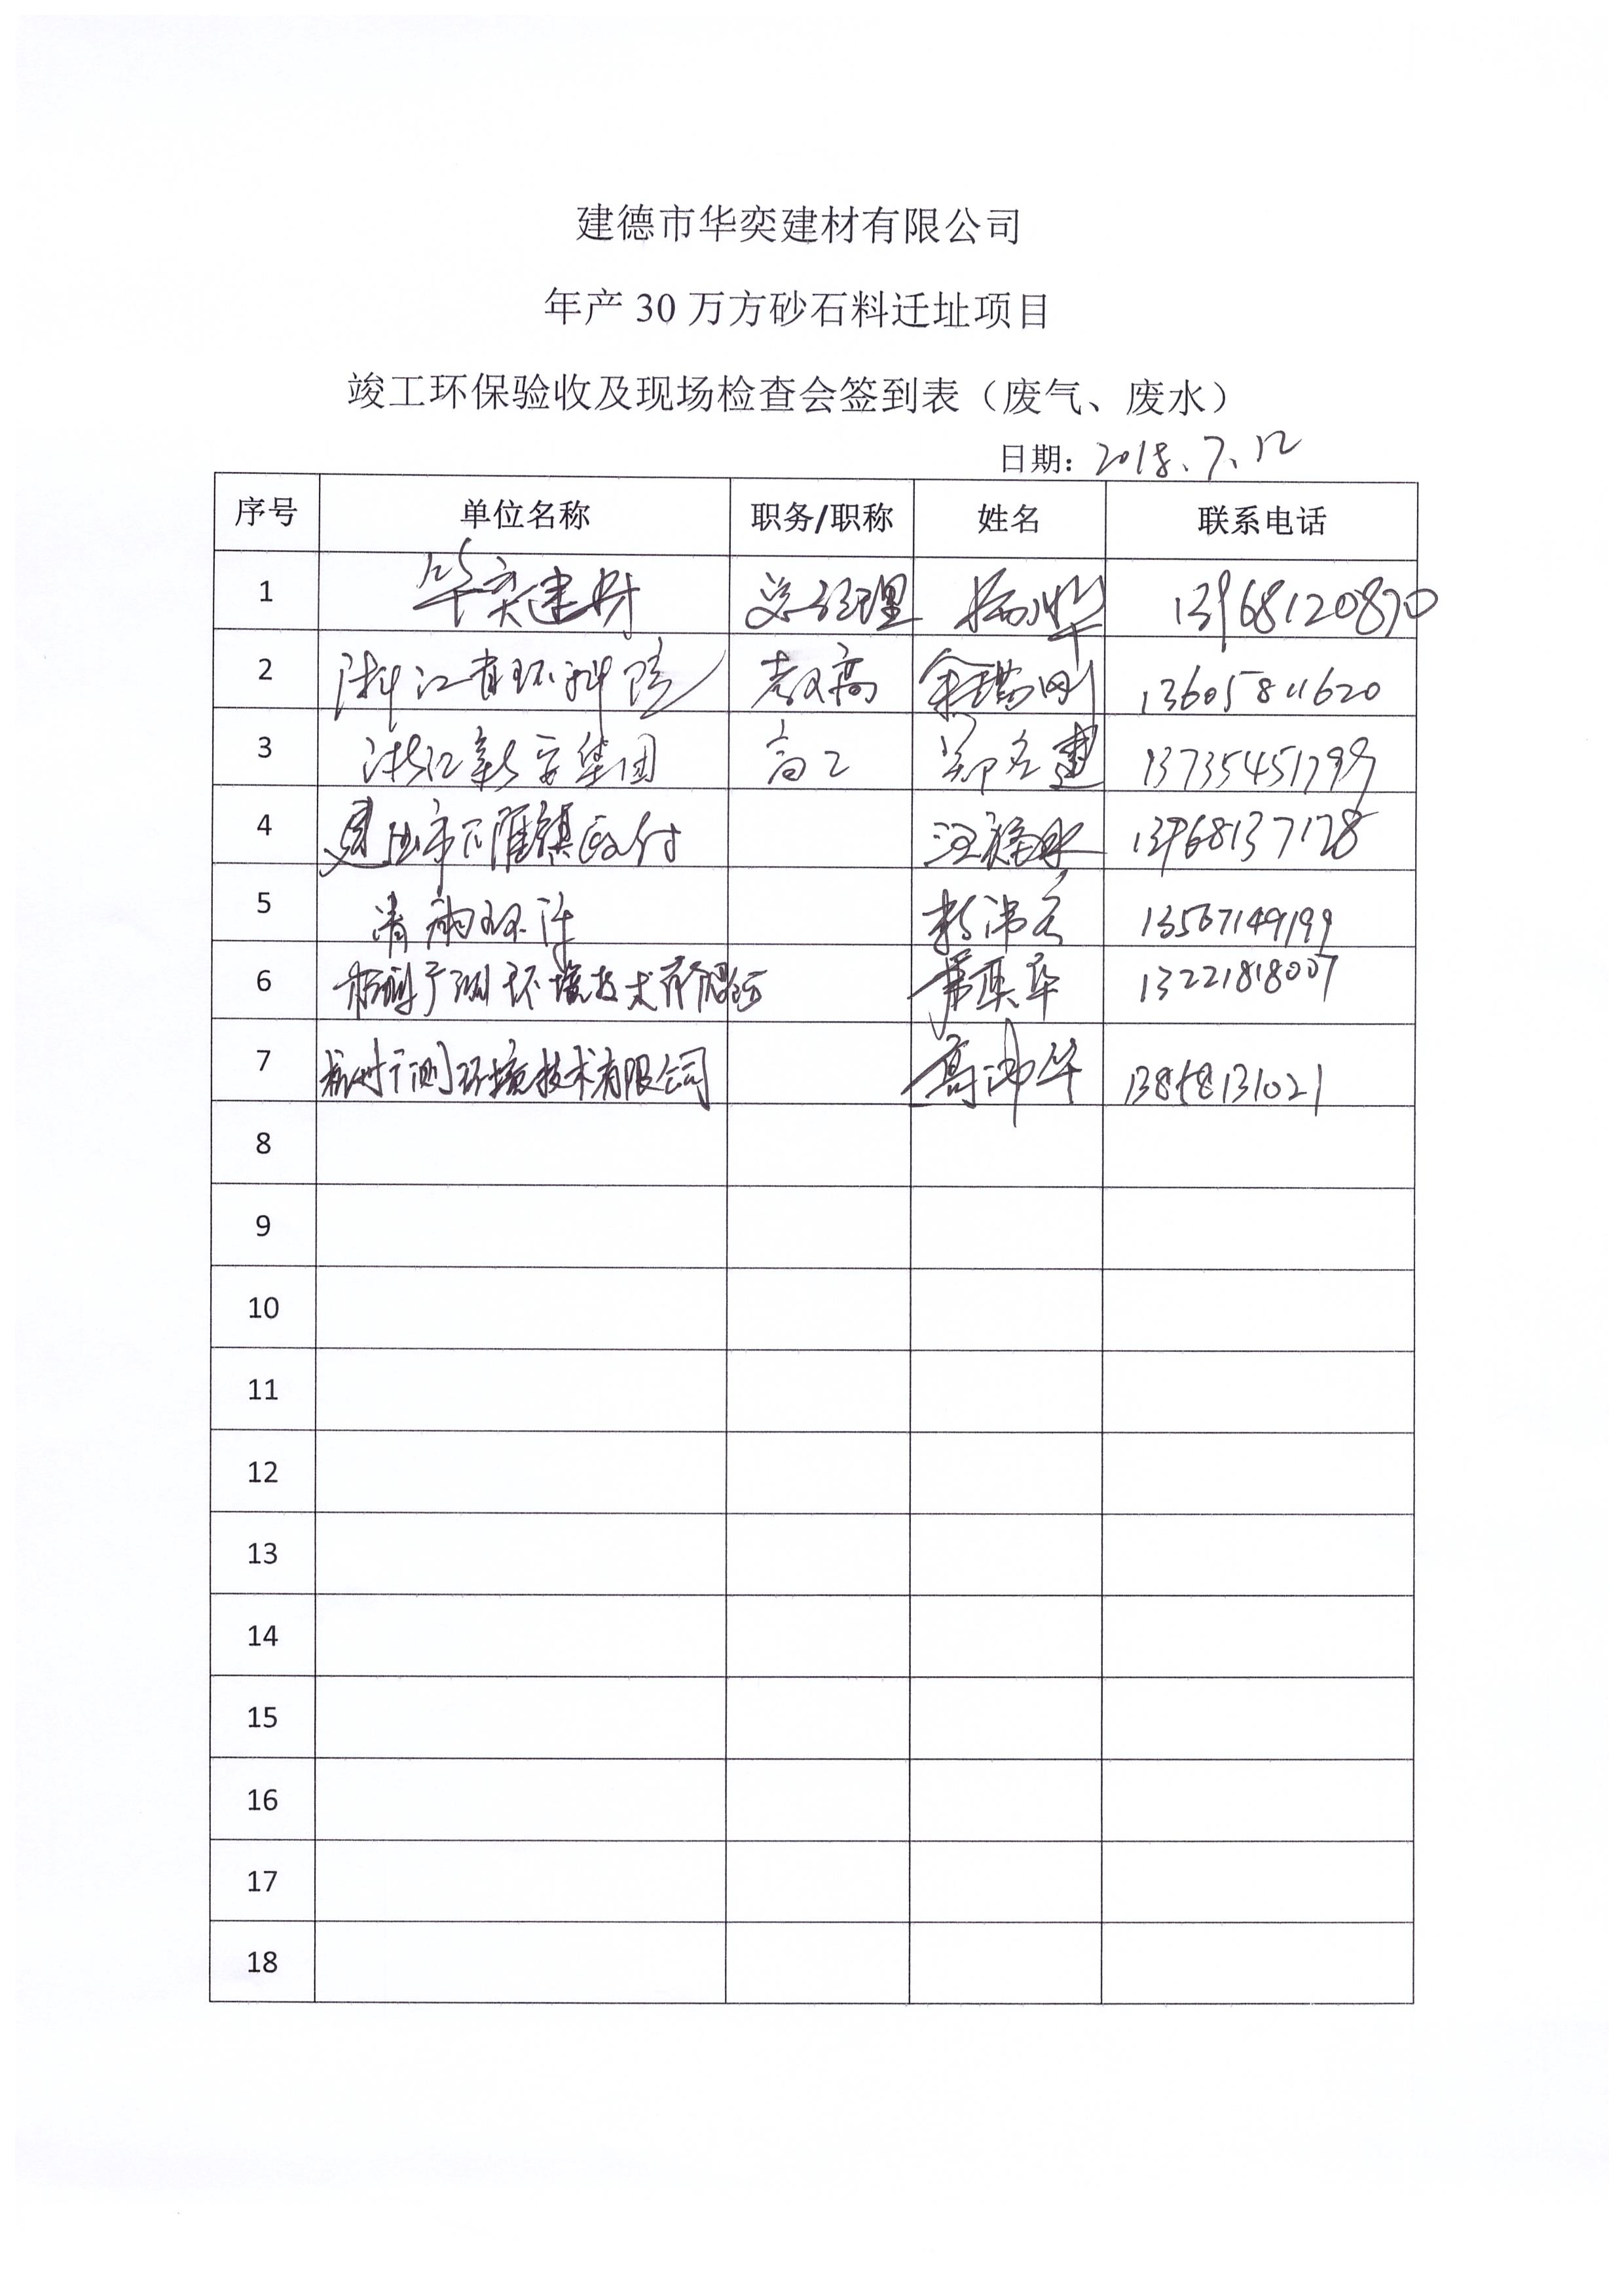 建德市华奕建材有限公司
年产 30 万方砂石料迁址项目
竣工环保验收及现场检查会签到表（废气、废水）
日期：2018.7.12
序号 单位名称 职务/职称 姓名 联系电话
1 华奕建材 总经理 13968120870
2 浙江省环科院 教高 13605811620
3 浙江新安集团 高工 13735451799
4 建德市下涯镇政府 13968137128
5 清雨环保 13567149199
6 杭州广测环境技术有限公司 13221818007
7 杭州广测环境技术有限公司 高 华 13858131021
8
9
10
11
12
13
14
15
16
17
18